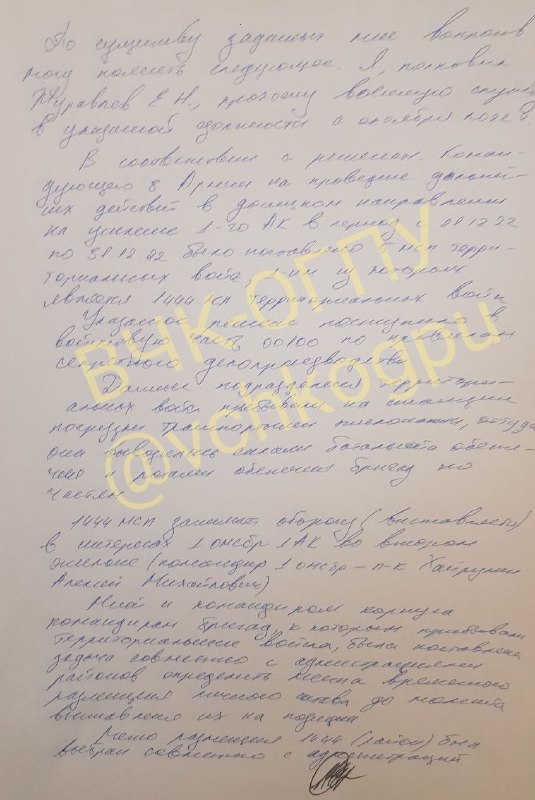 По существу заданных мне вопросов
могу пояснить следующее. Я, полковник
Журавлев Е.Н., прохожу военную службу
в указанной должности с октября 2022 г.
В соответствии с решением Коман-
дующего 8 Армии на проведение
действий в донецком направлении
на усиление 1-го АК в период с 22
по 31.12.22 было поставлено мсп терри-
ториальных войск, 1-им из которых
является 1444 мсп территориальных войск
Указанное решение поступило в
войсковую часть 00100 по правилам
секретного делопроизводства
Данные подразделения территори-
альных войск прибывали на станции
погрузки транспортными оттуда
они вывозились силами батальонов обеспе-
чения и ротами обеспечения бригад по
частям
1444 мсп занимает оборону (выставляется)
в интересах 1 омсбр 1 АК во втором
эшелоне (командир 1 омсбр - п-к Хайрулин
Алексей Михайлович)
Мной и командиром корпуса
командирам бригад, к которым прибывали
территориальные войска, была поставлена
задача совместно с администрациями
районов определить места временного
размещения личного состава до момента
выставления их на позиции
Место размещения 1444 (район) был
выбран совместно с администрацией
ВЧК-ОГПУ
@vchkogpu